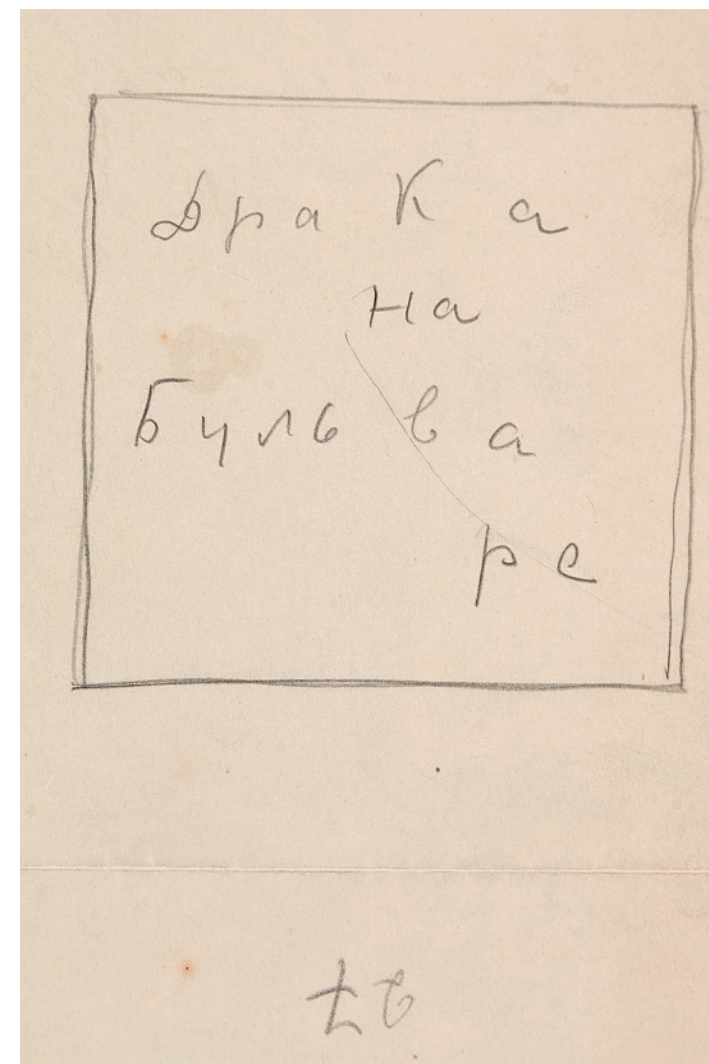 Драка
на
Бульва
ре
27